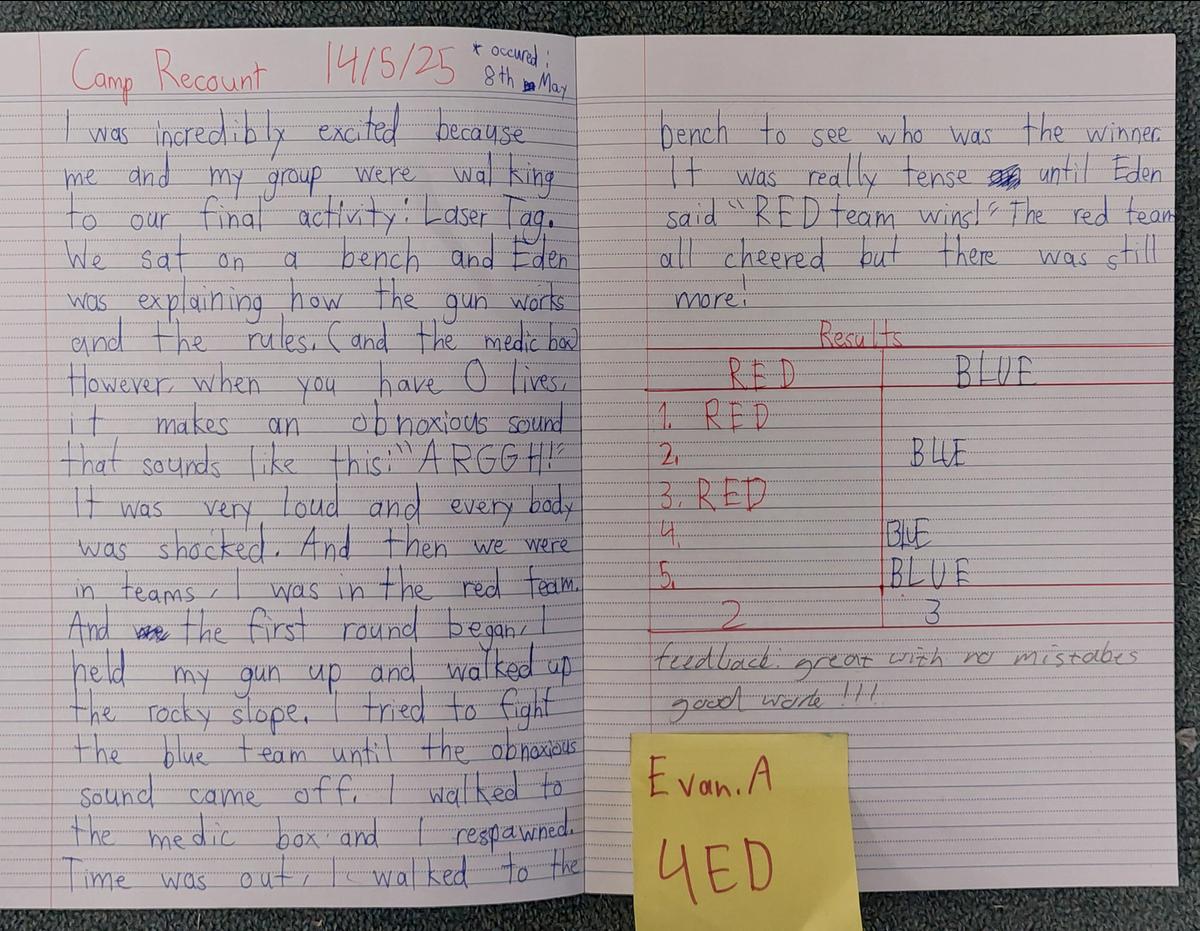 Camp Recount 14/5/25 * occured:
8th May
I was incredibly excited because
me and my group were walking
to our final activity: Laser Tag.
We sat on a bench and Eden
was explaining how the gun works
and the rules. (and the medic box)
However, when you have 0 lives,
it makes an obnoxious sound
that sounds like this: "ARGGH!"
It was very loud and every body
was shocked. And then we were
in teams, I was in the red team.
And the first round began, I
held my gun up and walked up
the rocky slope. I tried to fight
the blue team until the obnoxious
sound came off. I walked to
the medic box and I respawned.
Time was out, I walked to the
bench to see who was the winner.
It was really tense until Eden
said "RED team wins!" The red team
all cheered but there was still
more!
Results
RED BLUE
1. RED
2. BLUE
3. RED
4. BLUE
5. BLUE
2 3
feedback: great with no mistabes
good worke !!!
Evan.A
4ED